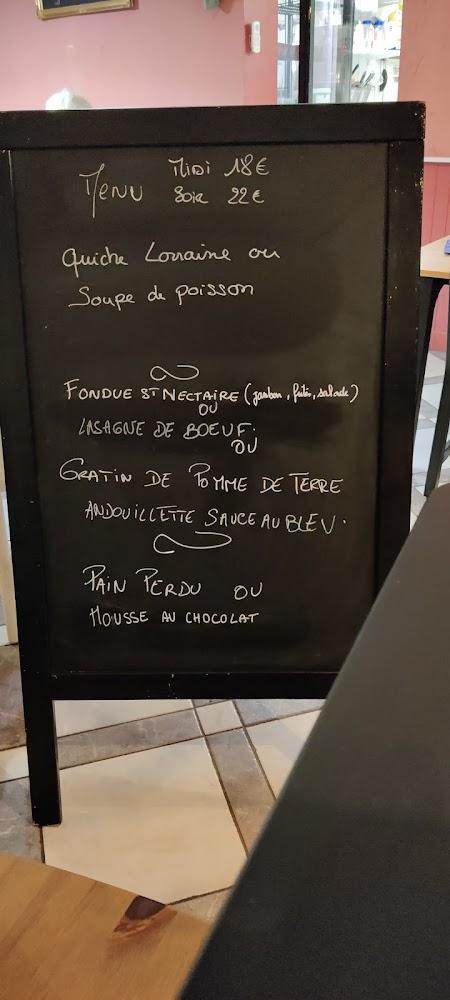 Menu Midi 18€
Soir 22€
Quiche Lorraine ou
Soupe de poisson
FONDUE ST NECTAIRE (jambon, frites, salade)
OU
LASAGNE DE BOEUF.
OU
GRATIN DE POMME DE TERRE
ANDOUILLETTE SAUCE AU BLEU.
PAIN PERDU OU
MOUSSE AU CHOCOLAT